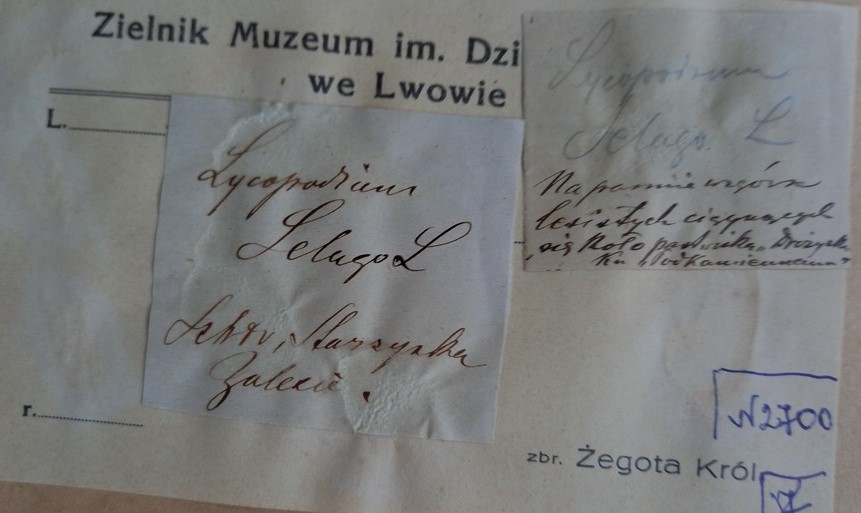 Zielnik Muzeum im. Dzi
we Lwowie
L.
Lycopodium
Selago L
Zalesie.
r.
Lycopodium
Selago. L
Na pasmie wzgórz
lesistych ciągnących
się koło pastwiska
Ku
N2700
zbr. Żegota Król